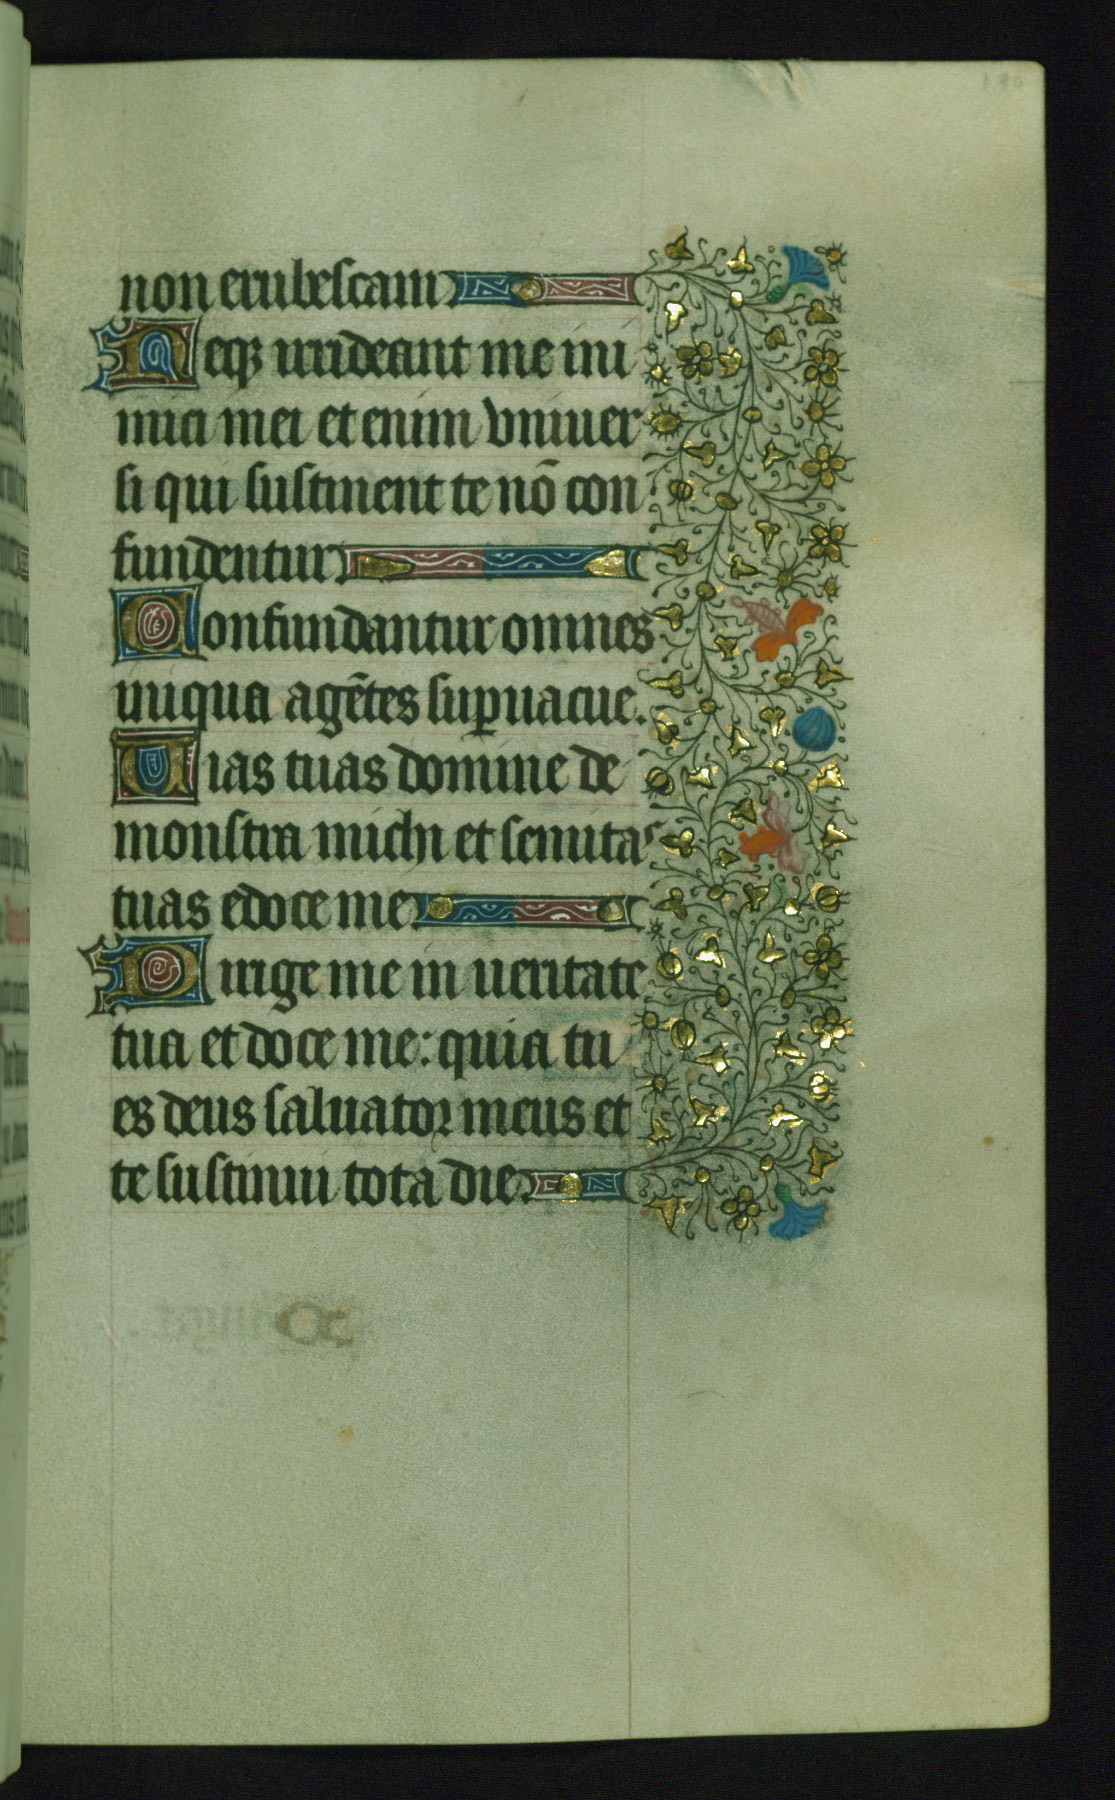 non erubescam
Neqz irrideant me ini
mici mei et enim vniuer
si qui sustinent te nō con
fundentur
Confundantur omnes
iniqua agētes suꝑuacue.
Uias tuas domine de
monstra michi et semitas
tuas edoce me
Dirige me in ueritate
tua et doce me: quia tu
es deus saluator meus et
te sustinui tota die